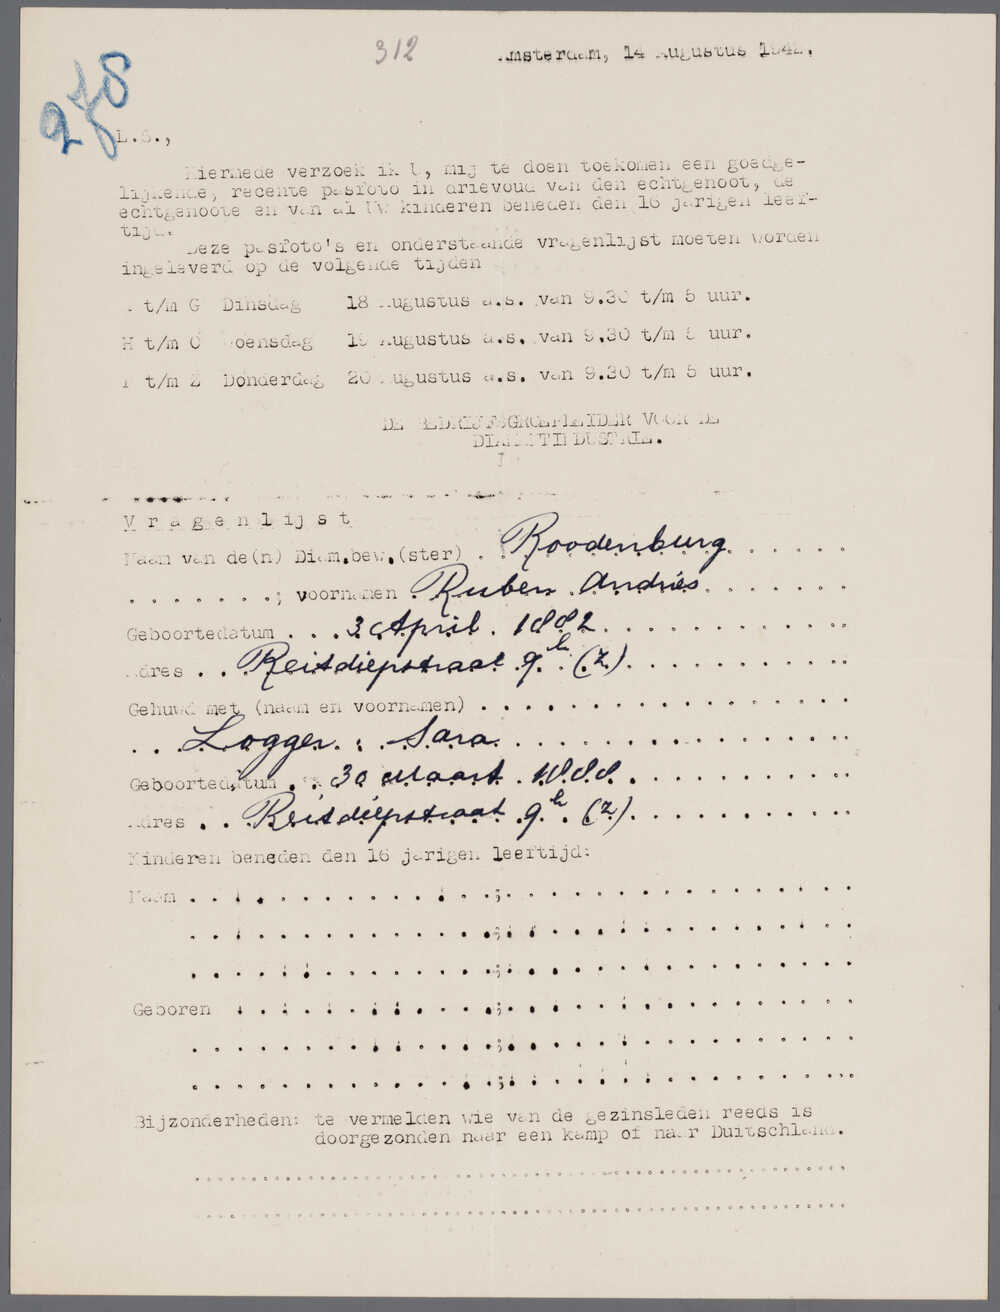 312
278
Amsterdam, 14 Augustus 1942.
L.S.,
Hiermede verzoek ik U, mij te doen toekomen een goedge-
lijkende, recente pasfoto in drievoud van den echtgenoot, de
echtgenoote en van al Uw kinderen beneden den 16 jarigen leef-
tijd.
Deze pasfoto's en onderstaande vragenlijst moeten worden
ingeleverd op de volgende tijden
A t/m G Dinsdag 18 Augustus a.s. van 9.30 t/m 5 uur.
H t/m O Woensdag 19 Augustus a.s. van 9.30 t/m 5 uur.
P t/m Z Donderdag 20 Augustus a.s. van 9.30 t/m 5 uur.
DE BEDRIJFSGROEPLEIDER VOOR DE
DIAMANTINDUSTRIE.
Vragenlijst
Naam van de(n) Diam.bew.(ster) . Roodenburg . . . . . .
. . . . . . . ; voornamen Ruben Andries . . . . . . .
Geboortedatum . . . 3 April. 1882 . . . . . . . . . . .
Adres . . Reitdiepstraat 9 h (Z) . . . . . . . . . .
Gehuwd met (naam en voornamen) . . . . . . . . . . . . . . . .
. . Logger : Sara . . . . . . . . . . . . . . . .
Geboortedatum . . 30 Maart . 1888 . . . . . . . . . .
Adres . . Reitdiepstraat 9 h. (Z) . . . . . . . . . .
Kinderen beneden den 16 jarigen leeftijd:
Naam . . . . . . . . . . . . . ; . . . . . . . . . . . . . . .
. . . . . . . . . . . . . ; . . . . . . . . . . . . . . .
. . . . . . . . . . . . . ; . . . . . . . . . . . . . . .
Geboren . . . . . . . . . . . ; . . . . . . . . . . . . . . .
. . . . . . . . . . . . . ; . . . . . . . . . . . . . . .
. . . . . . . . . . . . . ; . . . . . . . . . . . . . . .
Bijzonderheden: te vermelden wie van de gezinsleden reeds is
doorgezonden naar een kamp of naar Duitschland.